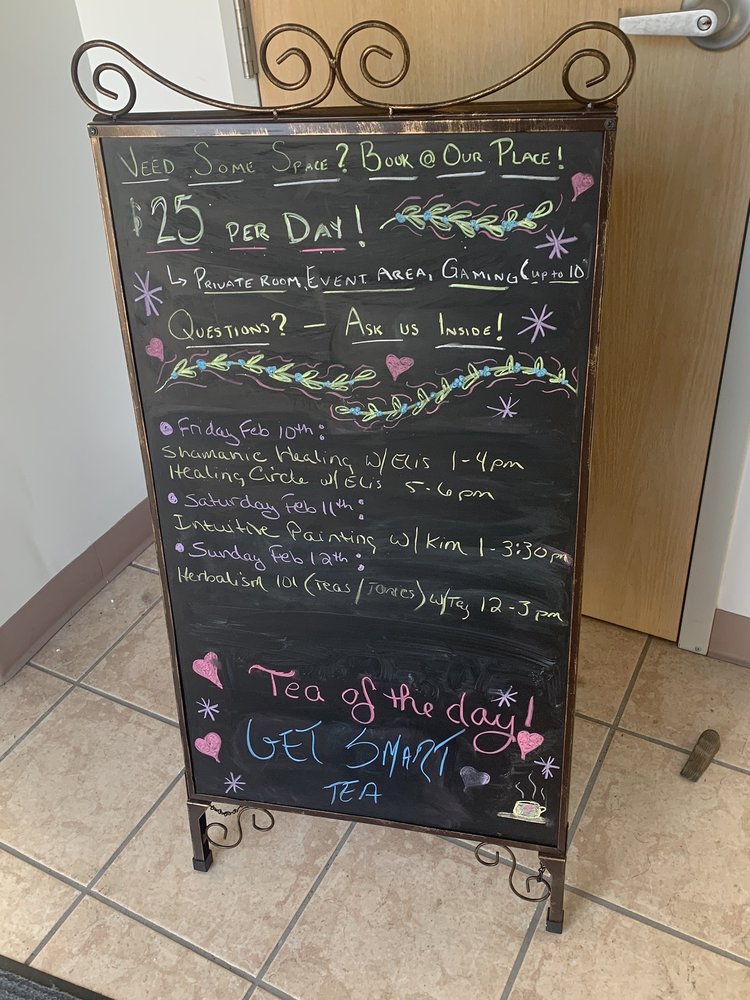 NEED SOME SPACE? BOOK @ OUR PLACE!
$25 PER DAY!
↳ PRIVATE ROOM, EVENT AREA, GAMING (UP TO 10)
QUESTIONS? — ASK US INSIDE!
Friday Feb 10th:
Shamanic Healing w/ Elis 1-4pm
Healing Circle w/ Elis 5-6 pm
Saturday Feb 11th:
Intuitive Painting w/ Kim 1-3:30pm
Sunday Feb 12th:
Herbalism 101 (Teas/Tonics) w/Tay 12-3pm
Tea of the day!
GET SMART
TEA